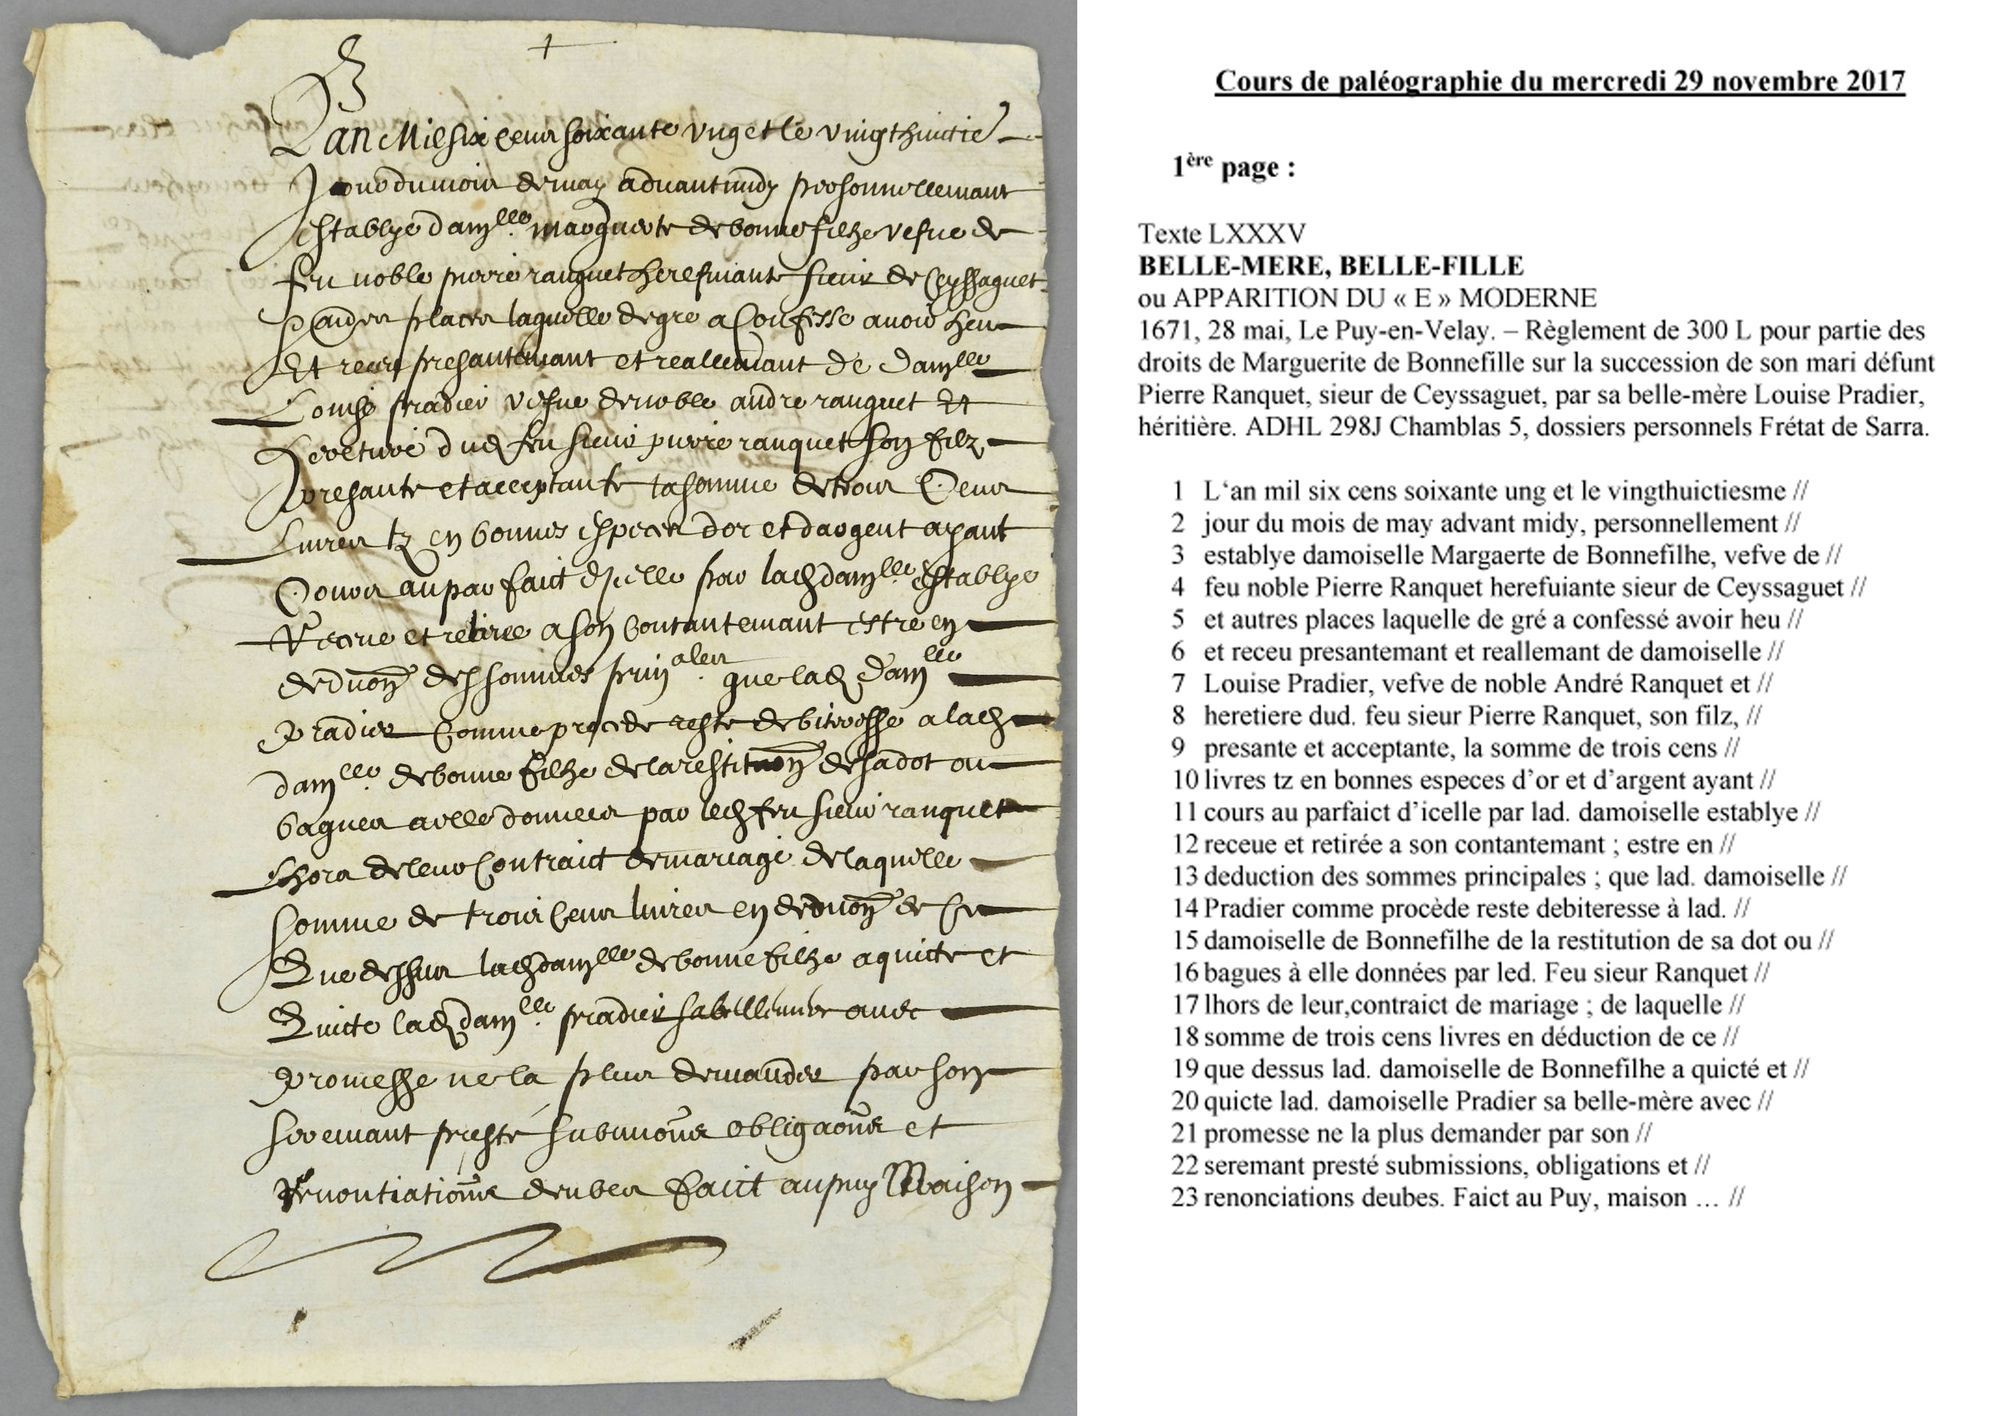 Lan Mil six cens soixante ung et le vingthuictie
Jour du mois de may advant midy personnellemant
establye damlle margaerte de bonnefilhe vefve de
feu noble pierre ranquet herefuiante sieur de Ceyssaguet
et autres places laquelle de gre a confesse avoir heu
Et receu presantemant et reallemant de damlle
Louise pradier vefve de noble andre ranquet Et
heretiere dud feu sieur pierre ranquet son filz
presante et acceptante la somme de trois Cens
Livres tz en bonnes especes dor et dargent ayant
Cours au parfaict dicelle par lad damlle establye
Receue et retiree a son contantemant estre en
deduon des sommes prinales que lad damlle
Pradier Comme procede reste debiteresse a lad
damlle de bonnefilhe de la restituon de sa dot ou
bagues a elle donnees par led feu sieur ranquet
Lhors de leur Contraict de mariage de laquelle
somme de trois Cens livres en deduon de ce
Que dessus lad damlle de bonnefilhe a quicte et
Quicte lad damlle pradier sa bellemere avec
Promesse ne la plus demander par son
seremant preste submions obligaons et
Renontiations deubes faict au puy Maison
Cours de paléographie du mercredi 29 novembre 2017
1ère page :
Texte LXXXV
BELLE-MERE, BELLE-FILLE
ou APPARITION DU « E » MODERNE
1671, 28 mai, Le Puy-en-Velay. – Règlement de 300 L pour partie des
droits de Marguerite de Bonnefille sur la succession de son mari défunt
Pierre Ranquet, sieur de Ceyssaguet, par sa belle-mère Louise Pradier,
héritière. ADHL 298J Chamblas 5, dossiers personnels Frétat de Sarra.
1 L‘an mil six cens soixante ung et le vingthuictiesme //
2 jour du mois de may advant midy, personnellement //
3 establye damoiselle Margaerte de Bonnefilhe, vefve de //
4 feu noble Pierre Ranquet herefuiante sieur de Ceyssaguet //
5 et autres places laquelle de gré a confessé avoir heu //
6 et receu presantemant et reallemant de damoiselle //
7 Louise Pradier, vefve de noble André Ranquet et //
8 heretiere dud. feu sieur Pierre Ranquet, son filz, //
9 presante et acceptante, la somme de trois cens //
10 livres tz en bonnes especes d’or et d’argent ayant //
11 cours au parfaict d’icelle par lad. damoiselle establye //
12 receue et retirée a son contantemant ; estre en //
13 deduction des sommes principales ; que lad. damoiselle //
14 Pradier comme procède reste debiteresse à lad. //
15 damoiselle de Bonnefilhe de la restitution de sa dot ou //
16 bagues à elle données par led. Feu sieur Ranquet //
17 lhors de leur,contraict de mariage ; de laquelle //
18 somme de trois cens livres en déduction de ce //
19 que dessus lad. damoiselle de Bonnefilhe a quicté et //
20 quicte lad. damoiselle Pradier sa belle-mère avec //
21 promesse ne la plus demander par son //
22 seremant presté submissions, obligations et //
23 renonciations deubes. Faict au Puy, maison … //